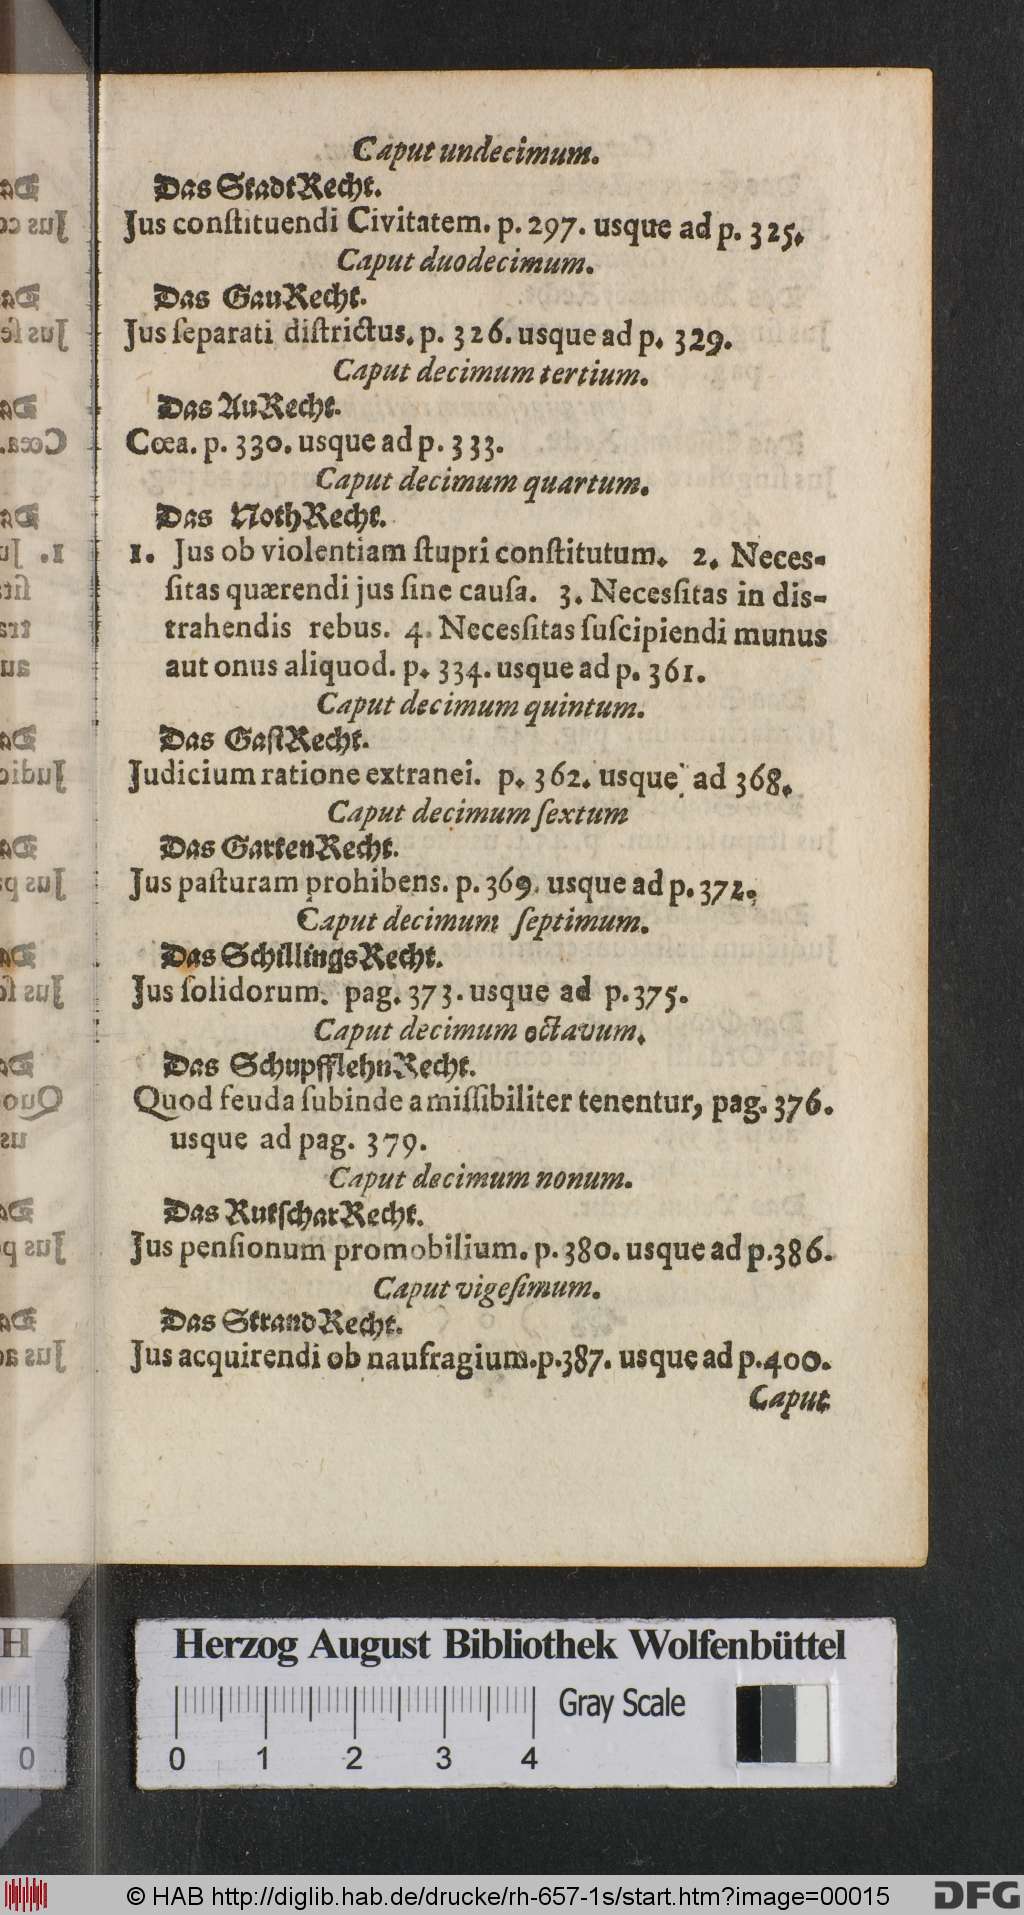 Caput undecimum.
Das StadtRecht.
Jus conſtituendi Civitatem. p. 297. usque ad p. 325.
Caput duodecimum.
Das GauRecht.
Jus ſeparati diſtrictus. p. 326. usque ad p. 329.
Caput decimum tertium.
Das AuRecht.
Cœa. p. 330. usque ad p. 333.
Caput decimum quartum.
Das NothRecht.
1. Jus ob violentiam ſtupri conſtitutum. 2. Neces-
ſitas quærendi jus ſine cauſa. 3. Necesſitas in dis-
trahendis rebus. 4. Necesſitas ſuſcipiendi munus
aut onus aliquod. p. 334. usque ad p. 361.
Caput decimum quintum.
Das GaſtRecht.
Judicium ratione extranei. p. 362. usque ad 368.
Caput decimum ſextum
Das GartenRecht.
Jus paſturam prohibens. p. 369. usque ad p. 372.
Caput decimum ſeptimum.
Das SchillingsRecht.
Jus ſolidorum. pag. 373. usque ad p. 375.
Caput decimum octavum.
Das SchupfflehnRecht.
Quod feuda ſubinde amiſſibiliter tenentur, pag. 376.
usque ad pag. 379.
Caput decimum nonum.
Das RutſcharRecht.
Jus penſionum promobilium. p. 380. usque ad p. 386.
Caput vigeſimum.
Das StrandRecht.
Jus acquirendi ob naufragium. p. 387. usque ad p. 400.
Caput
Herzog August Bibliothek Wolfenbüttel
Gray Scale
0 1 2 3 4
© HAB http://diglib.hab.de/drucke/rh-657-1s/start.htm?image=00015
DFG